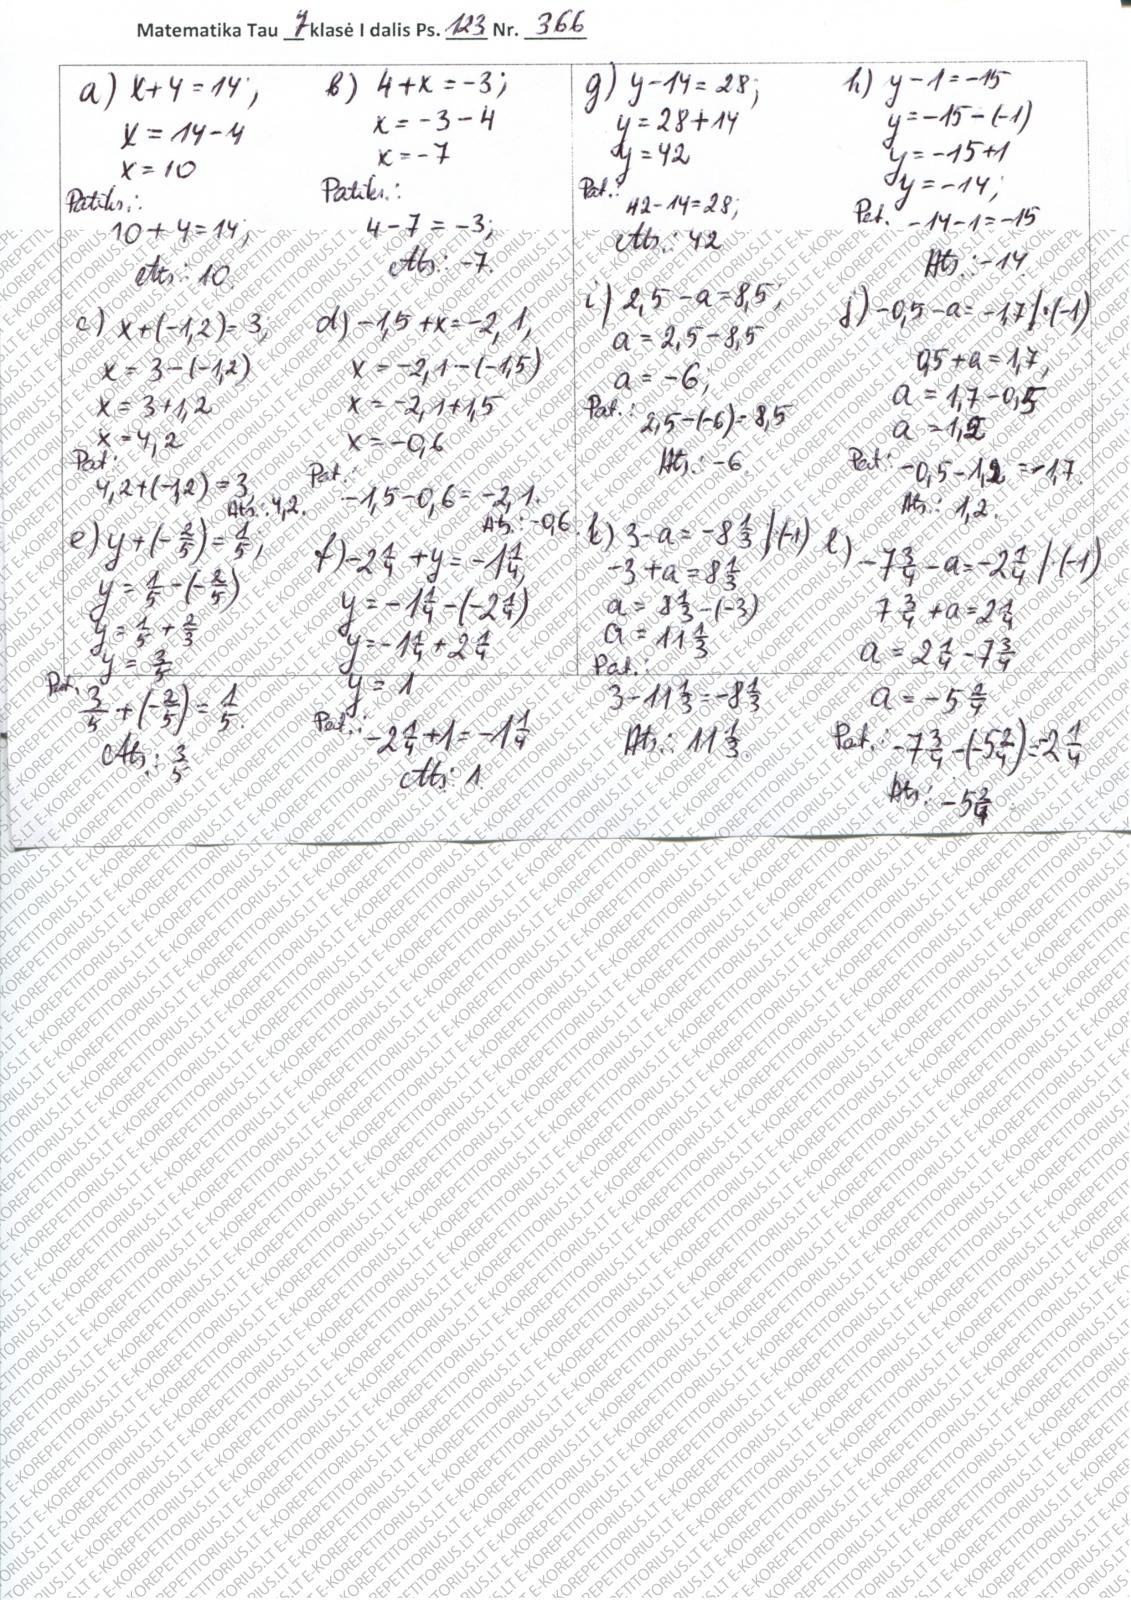 Matematika Tau 7 klasė I dalis Ps. 123 Nr. 366
a) x+4=14;
x = 14-4
x = 10
Patikr.:
10+4=14;
Ats.: 10.
b) 4+x=-3;
x = -3-4
x = -7
Patikr.:
4-7=-3;
Ats.: -7.
c) x+(-1,2)=3;
x = 3-(-1,2)
x = 3+1,2
x = 4,2
Pat.:
4,2+(-1,2)=3,
Ats.: 4,2.
d) -1,5+x=-2,1,
x = -2,1-(-1,5)
x = -2,1+1,5
x = -0,6
Pat.:
-1,5-0,6=-2,1.
Ats.: -0,6.
e) y+(-2/5)=1/5;
y = 1/5-(-2/5)
y = 1/5+2/3
y = 3/5
Pat.
3/5+(-2/5)=1/5.
Ats.: 3/5
f) -2 1/4 + y = -1 1/4,
y = -1 1/4-(-2 1/4)
y = -1 1/4 + 2 1/4
y = 1
Pat.: -2 1/4+1=-1 1/4
Ats.: 1.
g) y-14=28;
y = 28+14
y = 42
Pat.:
42-14=28;
Ats.: 42
h) y-1=-15
y = -15-(-1)
y = -15+1
y = -14;
Pat. -14-1=-15
Ats.: -14.
i) 2,5-a=8,5;
a = 2,5-8,5
a = -6;
Pat.: 2,5-(-6)=8,5
Ats.: -6.
j) -0,5-a=-1,7 /·(-1)
0,5+a=1,7,
a = 1,7-0,5
a = 1,2
Pat.: -0,5-1,2=-1,7.
Ats.: 1,2.
k) 3-a=-8 1/3 /·(-1)
-3+a=8 1/3
a = 8 1/3-(-3)
a = 11 1/3
Pat.:
3-11 1/3=-8 1/3
Ats.: 11 1/3.
l) -7 3/4-a=-2 1/4 /·(-1)
7 3/4+a=2 1/4
a = 2 1/4-7 3/4
a = -5 2/4
Pat.: -7 3/4-(-5 2/4)=-2 1/4
Ats.: -5 2/4
E-KOREPETITORIUS.LT